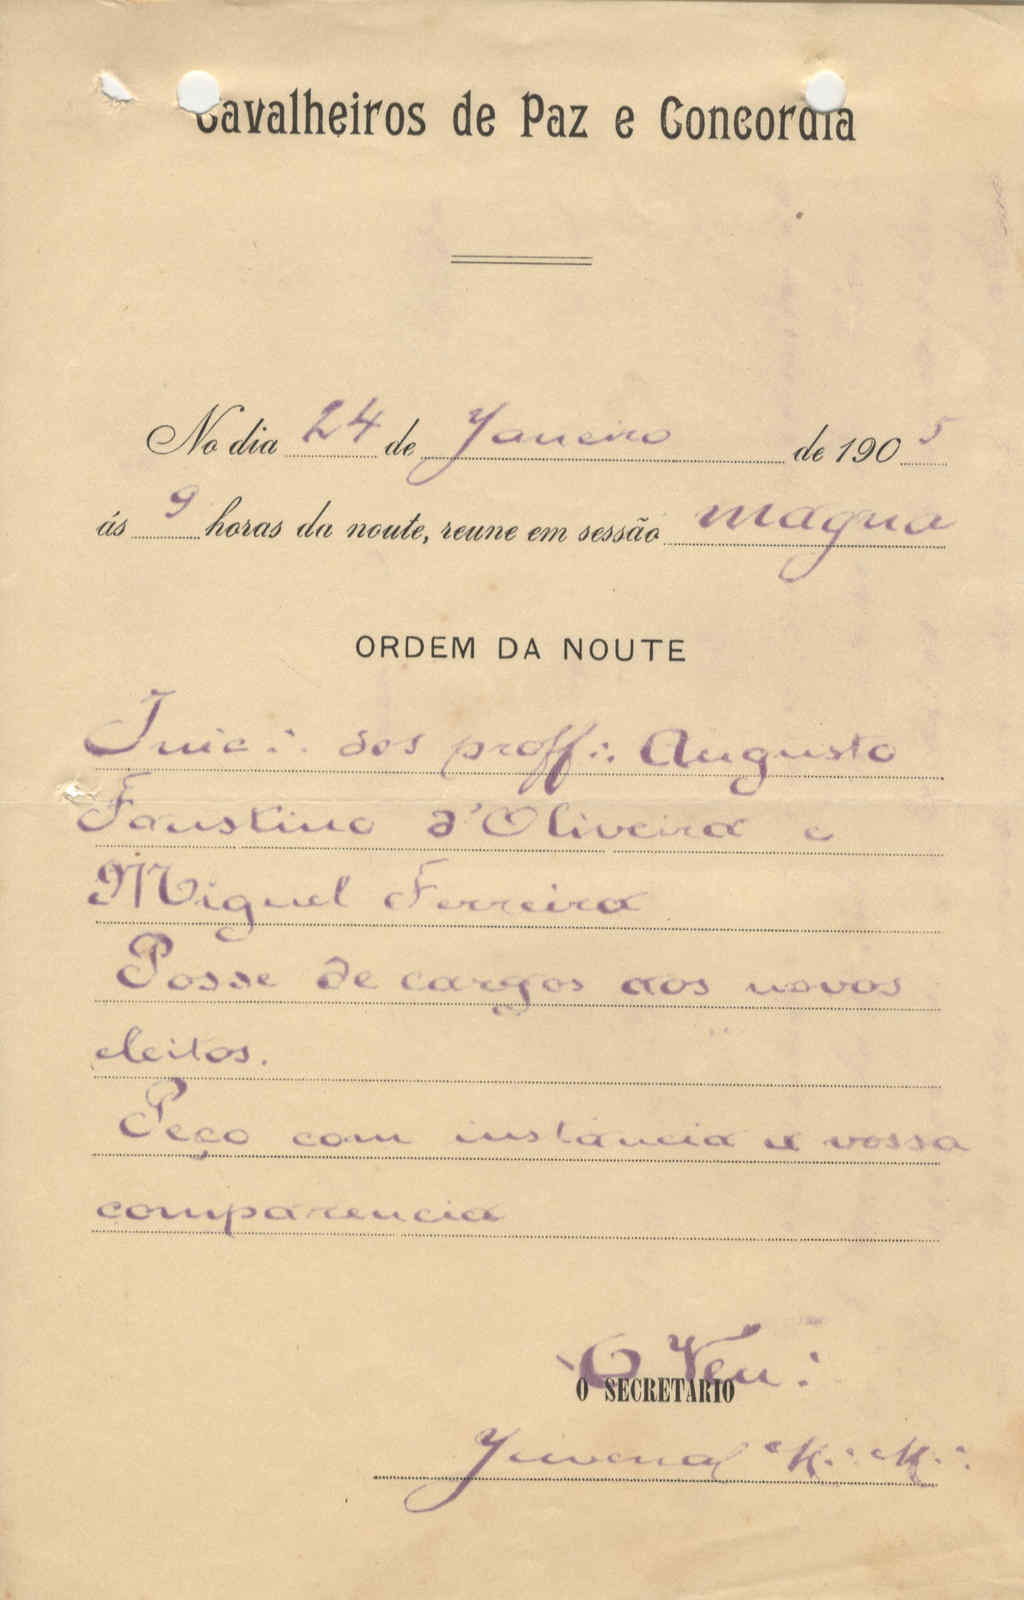 Cavalheiros de Paz e Concordia
No dia 24 de Janeiro de 1905
ás 9 horas da noute, reune em sessão magna
ORDEM DA NOUTE
Inic∴ dos proff∴ Augusto
Faustino d'Oliveira e
Miguel Ferreira
Posse de cargos aos novos
eleitos.
Peço com instancia a vossa
comparencia
O Ven∴
O SECRETARIO
Juvenal